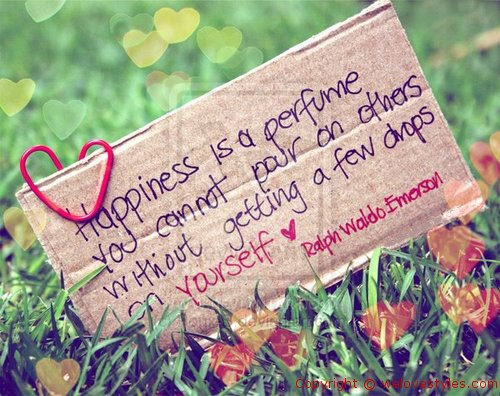 Happiness is a perfume
you cannot pour on others
without getting a few drops
on yourself
Ralph Waldo Emerson
Copyright © welovestyles.com